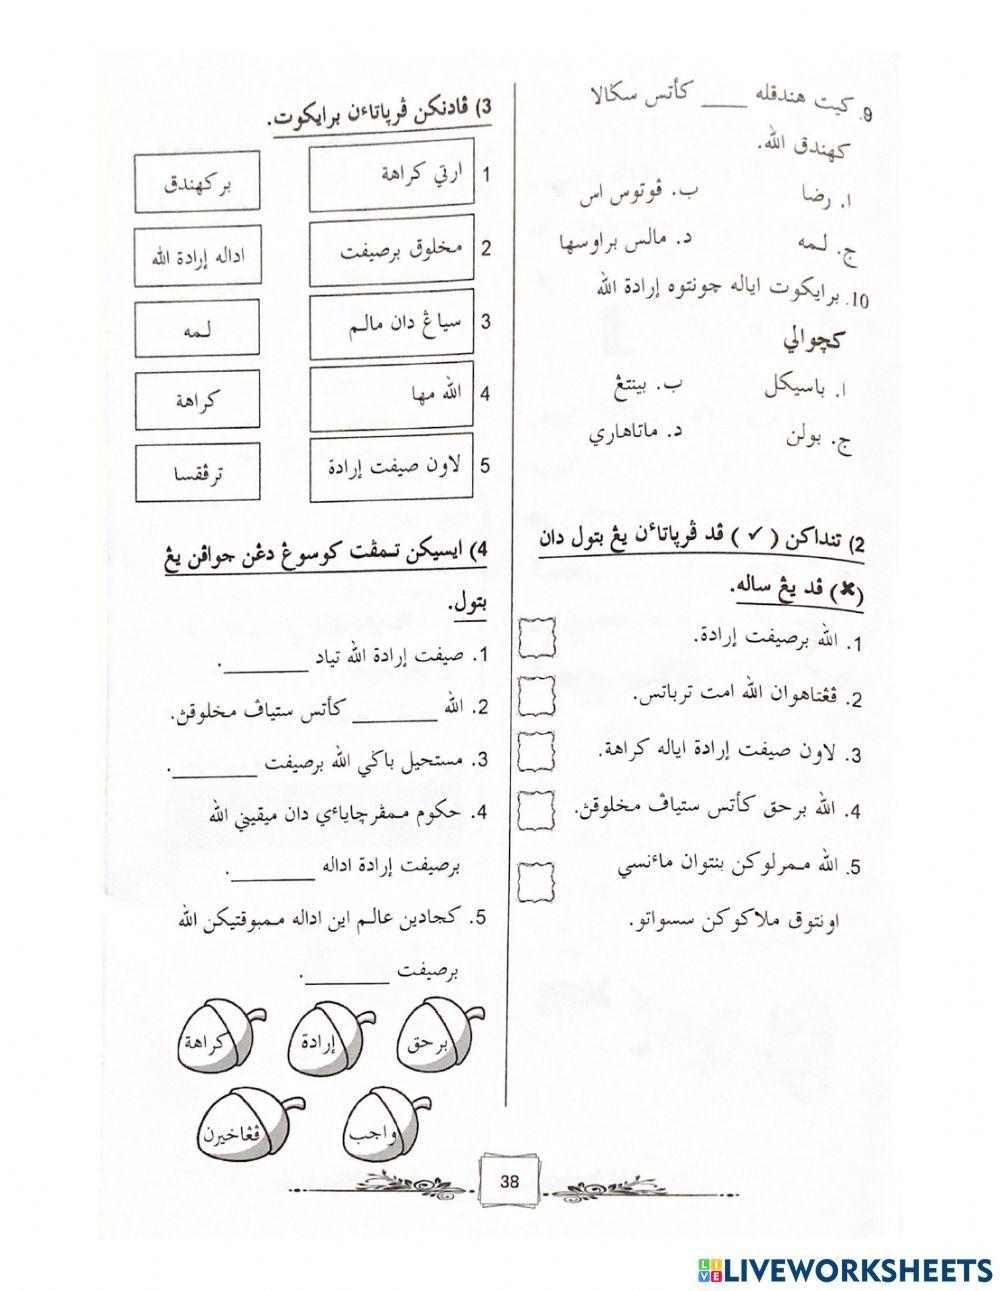 9. كيت هندقله ____ كأتس سݢالا
كهندق الله.
ا. رضا    ب. ڤوتوس اس
ج. لمه    د. مالس براوسها
10. برايكوت اياله چونتوه إرادة الله
کچوالي
ا. باسيكل    ب. بينتڠ
ج. بولن    د. ماتاهاري
2) تنداكن (✓) ڤد ڤرڽاتاءن يڠ بتول دان
(✖) ڤد يڠ ساله.
1. الله برصيفت إرادة.
2. ڤڠتاهوان الله امت ترباتس.
3. لاون صيفت إرادة اياله كراهة.
4. الله برحق كأتس ستياڤ مخلوقڽ.
5. الله ممرلوكن بنتوان ماءنسي
اونتوق ملاكوكن سسواتو.
3) ڤادنكن ڤرڽاتاءن برايكوت.
1 ارتي كراهة    بركهندق
2 مخلوق برصيفت    اداله إرادة الله
3 سياڠ دان مالم    لمه
4 الله مها    كراهة
5 لاون صيفت إرادة    ترڤقسا
4) ايسيكن تمڤت كوسوڠ دڠن جواڤن يڠ
بتول.
1. صيفت إرادة الله تياد ________.
2. الله ________ كأتس ستياڤ مخلوقڽ.
3. مستحيل باݢي الله برصيفت ________.
4. حكوم ممڤرچاياءي دان ميقيني الله
برصيفت إرادة اداله ________.
5. كجادين عالم اين اداله ممبوقتيكن الله
برصيفت ________.
برحق    إرادة    كراهة
واجب    ڤڠاخيرن
38
LIVE LIVEWORKSHEETS